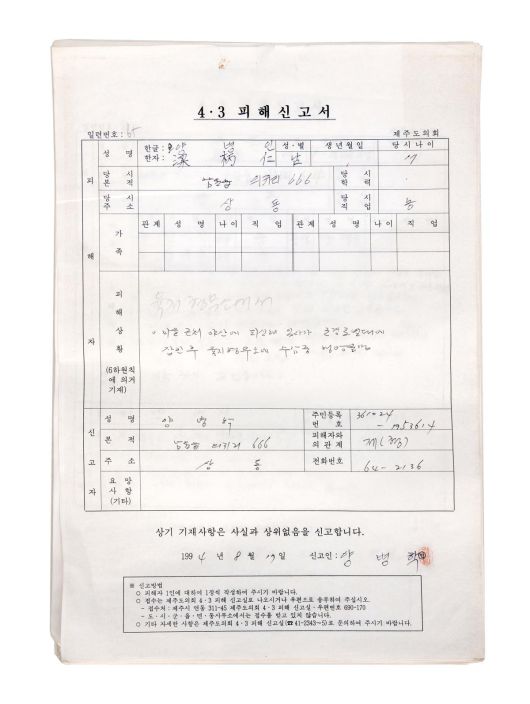 4·3 피해신고서
일련번호: 65 제주도의회
성 명 한글: 양 병 인 성·별 생년월일 당시나이
한자: 梁 仁 남
피 당 시 본 적 남원읍 의귀리 666 당 시 학 력
당 시 주 소 상 동 당 시 직 업 농
가 족 관 계 성 명 나 이 직 업 관 계 성 명 나 이 직 업
해
피 해 상 황 육지 형무소에서
자
잡힌 후 육지형무소에 수감중 행방불명
(6하원칙
에 의거
기재)
신 성 명 양 병 주민등록 번 호 361024
고 본 적 남원읍 의귀리 666 피해자와의 관계
주 소 상 동 전화번호 64-2136
자 요 망 사 항 (기타)
상기 기재사항은 사실과 상위없음을 신고합니다.
1994 년 8 월 19 일 신고인: 양 병
※ 신고방법
○ 피해자 1인에 대하여 1장씩 작성하여 주시기 바랍니다.
○ 접수는 제주도의회 4·3 피해 신고실로 나오시거나 우편으로 송부하여 주십시오.
- 접수처 : 제주시 연동 311-45 제주도의회 4·3 피해 신고실·우편번호 690-170
- 도·시·군·읍·면·동사무소에서는 접수를 받고 있지 않습니다.
○ 기타 자세한 사항은 제주도의회 4·3 피해 신고실(☎41-2343~5)로 문의하여 주시기 바랍니다.